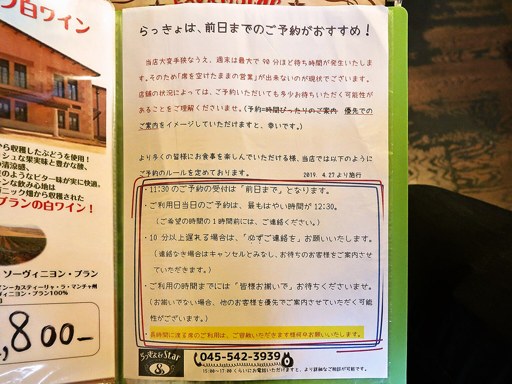 の白ワイン
から収穫したぶどうを使用!
シュな果実味と豊かな酸、
の清涼感、
のようなビター味が実に快適。
ンな飲み心地は
ニック畑から収穫された
ブランの白ワイン!
ソーヴィニヨン・ブラン
インカスティーリャ・ラ・マンチャ州
ヴィニヨン・ブラン100%
,800-
らっきょは、前日までのご予約がおすすめ!
当店大変手狭なうえ、週末は最大で90分ほど待ち時間が発生いたしま
す。そのため「席を空けたままの営業」が出来ないのが現状でございます。
店舗の状況によっては、ご予約いただいても多少お待ちいただく可能性が
あることをご理解くださいませ。(予約=時間ぴったりのご案内 優先での
ご案内をイメージしていただけますと、幸いです。)
より多くの皆様にお食事を楽しんでいただける様、当店では以下のように
ご予約のルールを定めております。 2019. 4.27より施行
・11:30のご予約の受付は「前日まで」となります。
・ご利用日当日のご予約は、最もはやい時間が12:30。
(ご希望の時間の1時間前には、ご連絡ください。)
・10分以上遅れる場合は、「必ずご連絡を」お願いいたします。
(連絡なき場合はキャンセルとみなし、お待ちのお客様をご案内させ
ていただきます。)
・ご利用の時間までには"皆様お揃いで"お待ちくださいませ。
(お揃いでない場合、他のお客様を優先でご案内させていただく可能
性がございます。)
・長時間に渡る席のご利用は、ご遠慮いただきます様何卒お願いいたします。
らっきょ Star
&
045-542-3939
15:00~17:00くらいにお電話いただけますと、より詳細なご相談が可能です。